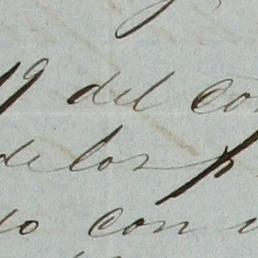 19 del co
de los p
do con u